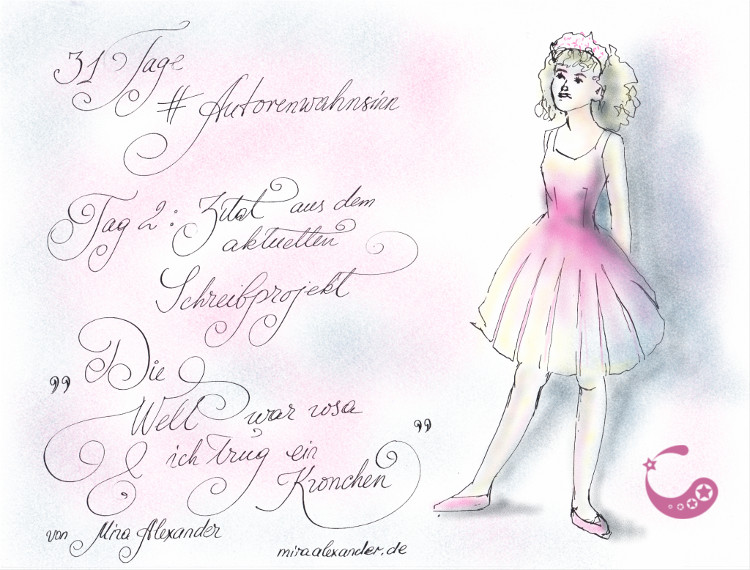 31 Tage
# Autorenwahnsinn
Tag 2: Zitat aus dem
aktuellen
Schreibprojekt
„Die
Welt war rosa
& ich trug ein
Krönchen"
von Mira Alexander
miraalexander.de